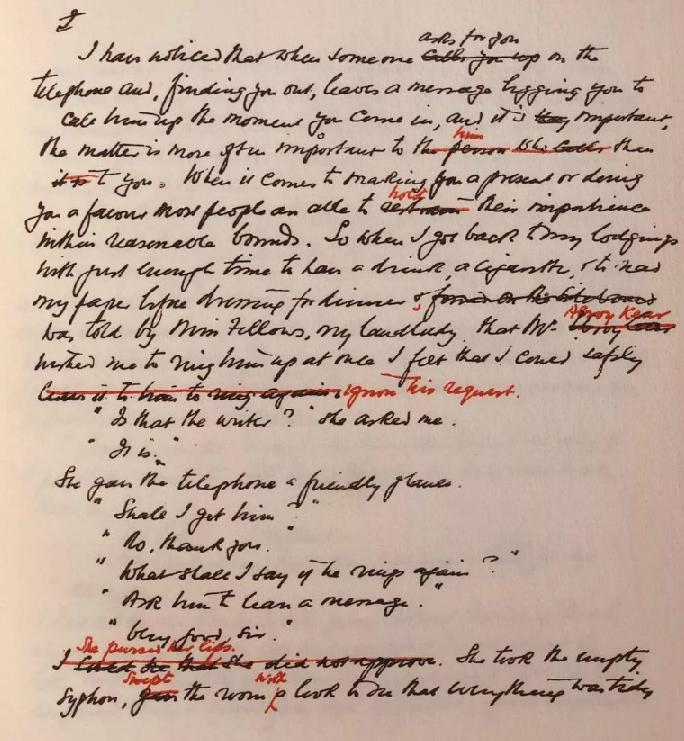 I
asks for you
I have noticed that when someone calls you up on the
telephone and, finding you out, leaves a message begging you to
call him up the moment you come in, and it is important,
him
the matter is more often important to the person who calls than
it is to you. When it comes to making you a present or doing
hold
you a favour most people are able to restrain their impatience
within reasonable bounds. So when I got back to my lodgings
with just enough time to have a drink, a cigarette, & to read
my paper before dressing for dinner &
Alroy Kear
was told by Miss Fellows, my landlady, that Mr. Alroy Kear
wished me to ring him up at once I felt that I could safely
leave it to him to ring again ignore his request.
"Is that the writer?" she asked me.
"It is."
She gave the telephone a friendly glance.
"Shall I get him?"
"No, thank you.
"What shall I say if he rings again?"
"Ask him to leave a message."
"Very good, sir."
She pursed her lips.
I that she did not approve. She took the empty
swept with
syphon, gave the room a look to see that everything was tidy